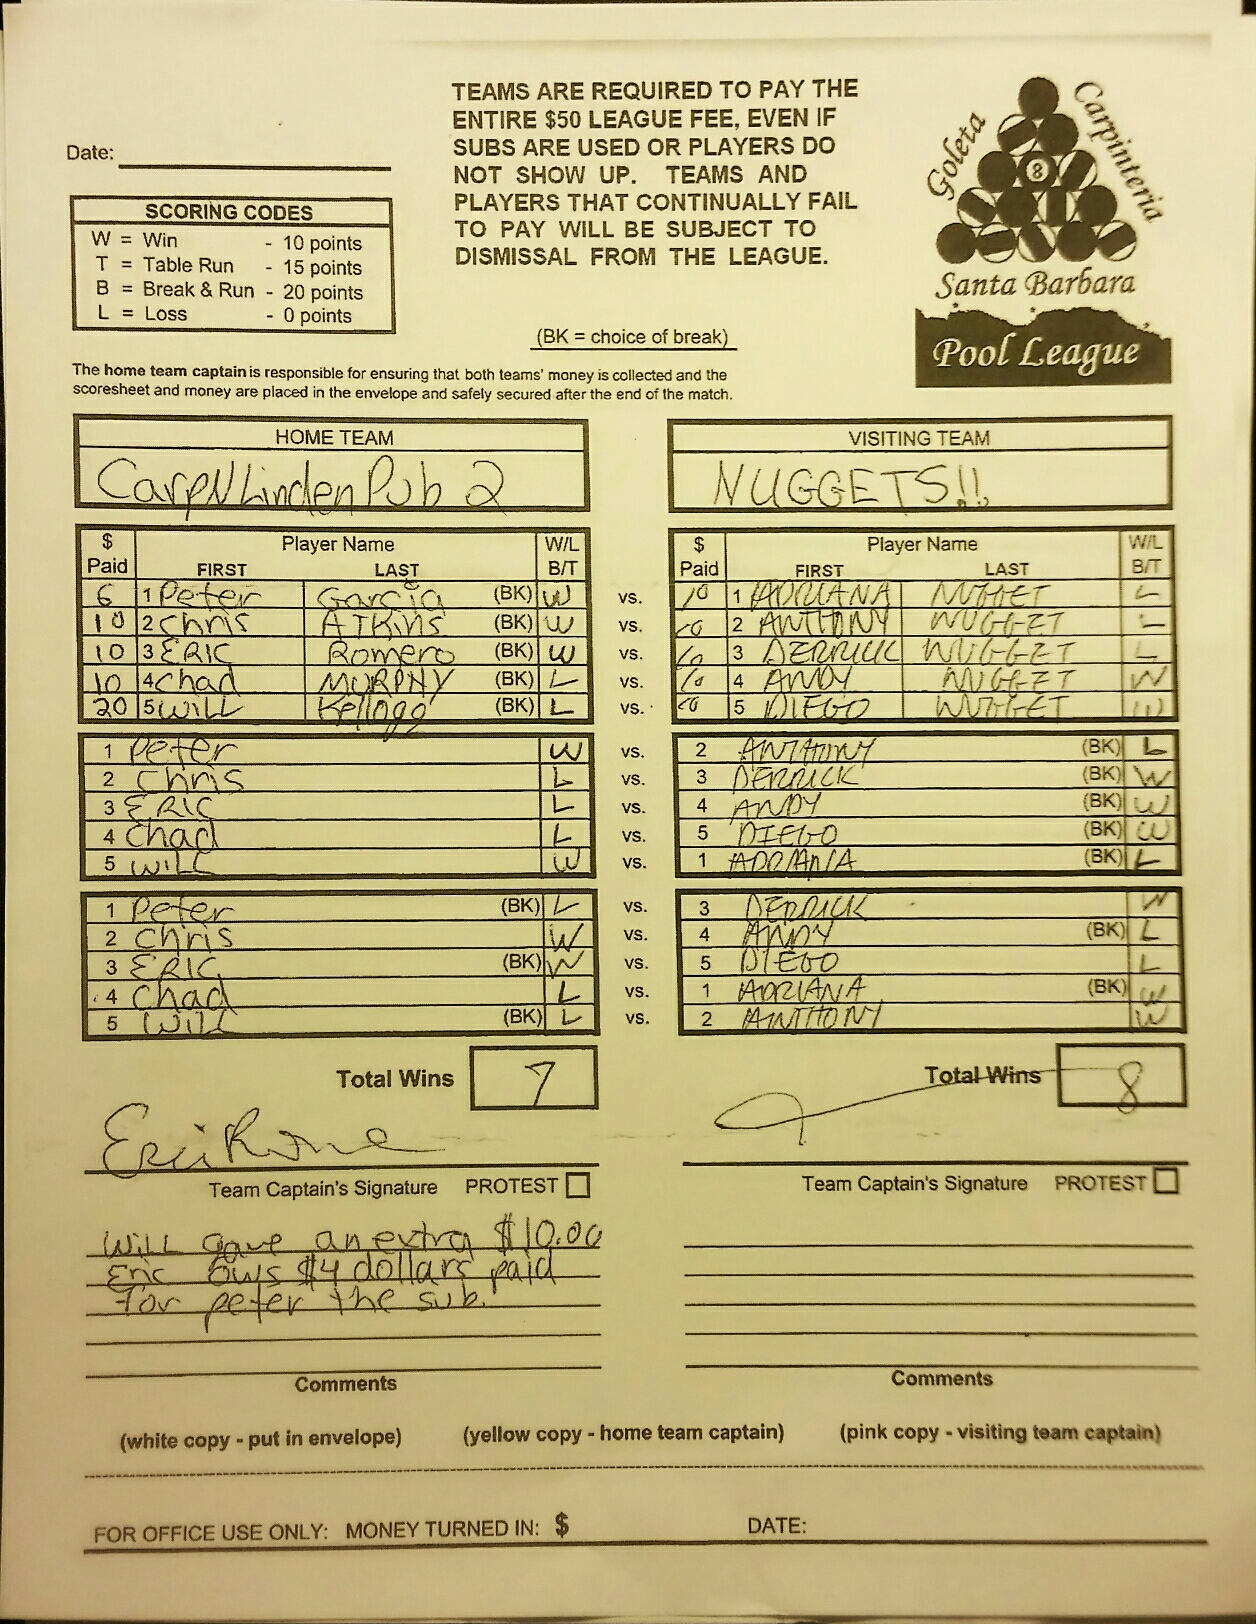 TEAMS ARE REQUIRED TO PAY THE
ENTIRE $50 LEAGUE FEE, EVEN IF
SUBS ARE USED OR PLAYERS DO
NOT SHOW UP. TEAMS AND
PLAYERS THAT CONTINUALLY FAIL
TO PAY WILL BE SUBJECT TO
DISMISSAL FROM THE LEAGUE.
Goleta
Carpinteria
8
Santa Barbara
Pool League
Date:
SCORING CODES
W = Win - 10 points
T = Table Run - 15 points
B = Break & Run - 20 points
L = Loss - 0 points
(BK = choice of break)
The home team captain is responsible for ensuring that both teams' money is collected and the
scoresheet and money are placed in the envelope and safely secured after the end of the match.
HOME TEAM VISITING TEAM
CarpNLinden Pub 2 NUGGETS!!
$ Paid Player Name FIRST LAST W/L B/T $ Paid Player Name FIRST LAST W/L B/T
6 1 Peter Garcia (BK) W vs. 10 1 ADRIANA NUGGET L
10 2 Chris ATKins (BK) W vs. 10 2 ANTHONY NUGGET L
10 3 ERIC Romero (BK) W vs. 10 3 DERRICK NUGGET L
10 4 Chad MURPHY (BK) L vs. 10 4 ANDY NUGGET W
20 5 WILL Kellogg (BK) L vs. 10 5 DIEGO NUGGET W
1 Peter W vs. 2 ANTHONY (BK) L
2 Chris L vs. 3 DERRICK (BK) W
3 ERIC L vs. 4 ANDY (BK) W
4 Chad L vs. 5 DIEGO (BK) W
5 WILL W vs. 1 ADRIANA (BK) L
1 Peter (BK) L vs. 3 DERRICK W
2 Chris W vs. 4 ANDY (BK) L
3 ERIC (BK) W vs. 5 DIEGO L
4 Chad L vs. 1 ADRIANA (BK) W
5 WILL (BK) L vs. 2 ANTHONY W
Total Wins 7 Total Wins 8
Team Captain's Signature PROTEST Team Captain's Signature PROTEST
WILL gave an extra $10.00
Eric Ows $4 dollars paid
For peter the sub.
Comments Comments
(white copy - put in envelope) (yellow copy - home team captain) (pink copy - visiting team captain)
FOR OFFICE USE ONLY: MONEY TURNED IN: $ DATE: